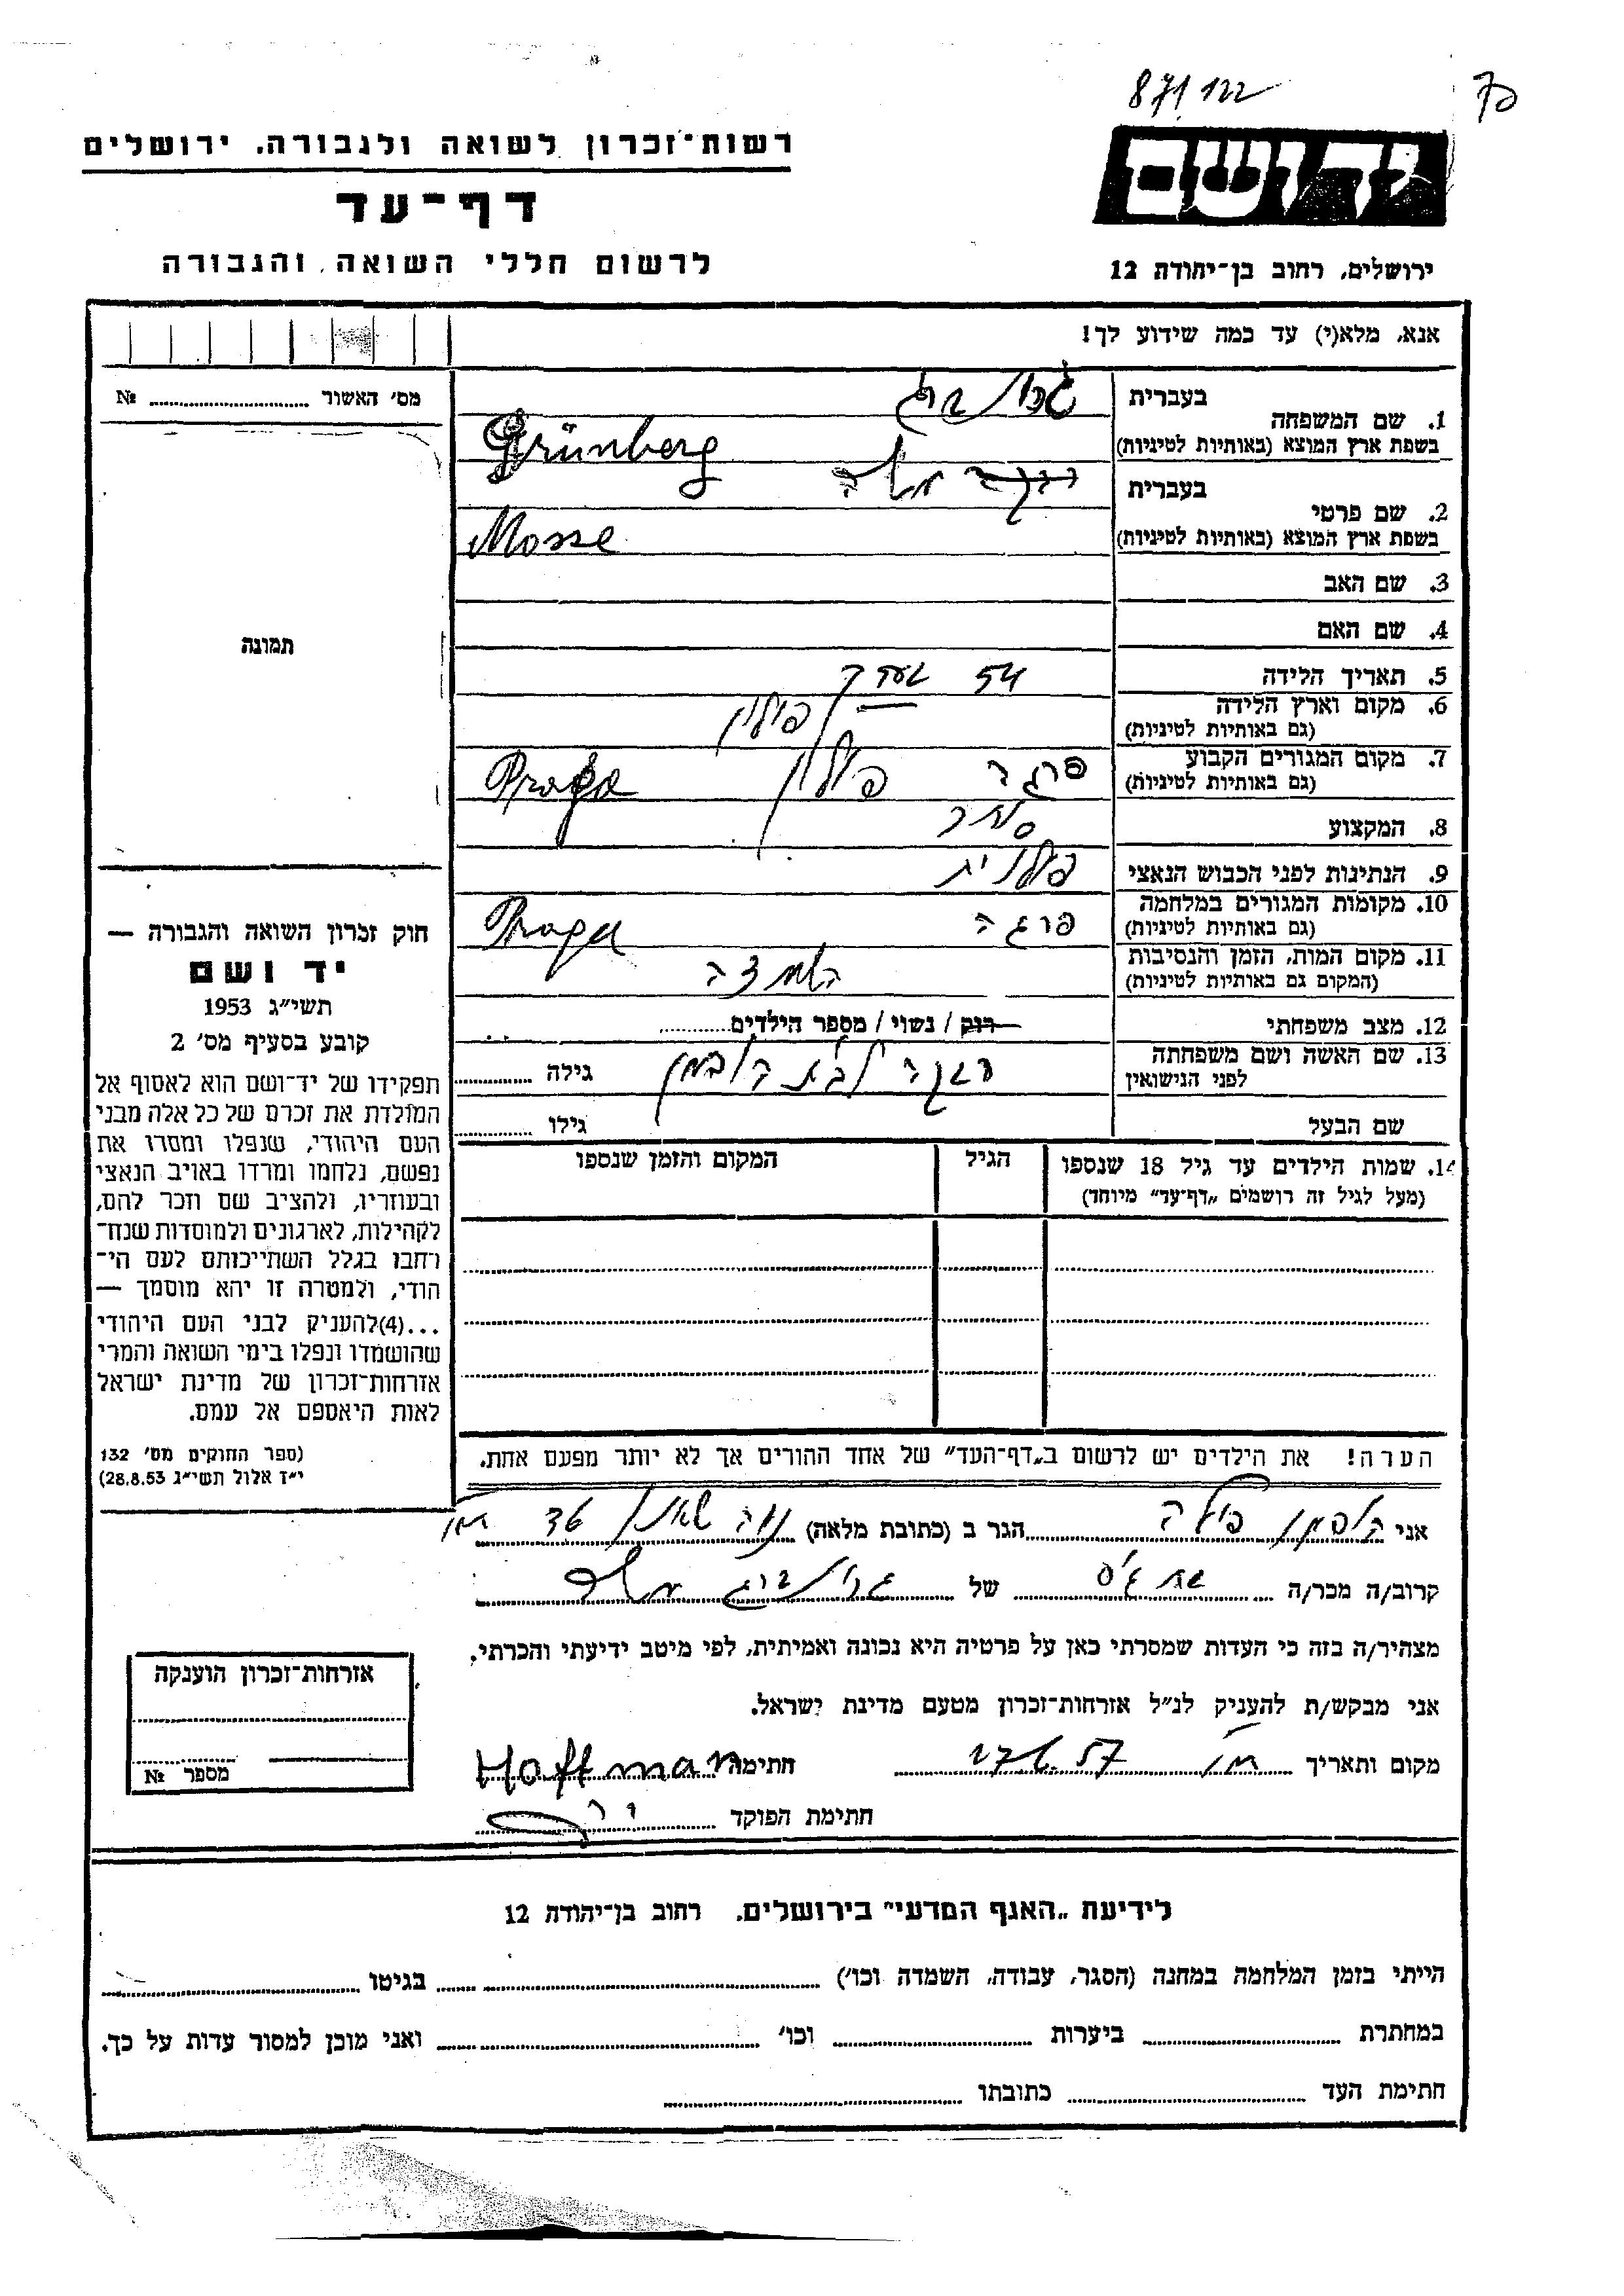 871/122
רשות-זכרון לשואה ולגבורה, ירושלים
דף-עד
לרשום חללי השואה והגבורה
יד ושם
ירושלים, רחוב בן-יהודה 12
אנא, מלא(י) עד כמה שידוע לך!
מס' האשור № 
1. שם המשפחה
בעברית
גרינברג
בשפת ארץ המוצא (באותיות לטיניות)
Grünberg
2. שם פרטי
בעברית
משה
בשפת ארץ המוצא (באותיות לטיניות)
Mosse
3. שם האב
4. שם האם
5. תאריך הלידה 54
6. מקום וארץ הלידה
(גם באותיות לטיניות)
פולין
7. מקום המגורים הקבוע
(גם באותיות לטיניות)
פרגה פולין Praga
8. המקצוע סוחר
9. הנתינות לפני הכבוש הנאצי פולנית
10. מקומות המגורים במלחמה
(גם באותיות לטיניות)
פרגה Praga
11. מקום המות, הזמן והנסיבות
(המקום גם באותיות לטיניות)
השמדה
12. מצב משפחתי רוק / נשוי / מספר הילדים
13. שם האשה ושם משפחתה
לפני הנישואין
לבית הופמן גילה
שם הבעל גילו
14. שמות הילדים עד גיל 18 שנספו
(מעל לגיל זה רושמים „דף-עד" מיוחד)
הגיל
המקום והזמן שנספו
הערה! את הילדים יש לרשום ב„דף-העד" של אחד ההורים אך לא יותר מפעם אחת.
תמונה
חוק זכרון השואה והגבורה —
יד ושם
תשי"ג 1953
קובע בסעיף מס' 2
תפקידו של יד-ושם הוא לאסוף אל
המולדת את זכרם של כל אלה מבני
העם היהודי, שנפלו ומסרו את
נפשם, נלחמו ומרדו באויב הנאצי
ובעוזריו, ולהציב שם וזכר להם,
לקהילות, לארגונים ולמוסדות שנח-
רחבו בגלל השתייכותם לעם הי-
הודי, ולמטרה זו יהא מוסמך —
...(4)להעניק לבני העם היהודי
שהושמדו ונפלו בימי השואה והמרי
אזרחות-זכרון של מדינת ישראל
לאות היאספם אל עמם.
(ספר החוקים מס' 132
י"ד אלול תשי"ג 28.8.53)
אני הופמן הגר ב (כתובת מלאה) נוה שאנן
קרוב/ה מכר/ה של גרינברג משה
מצהיר/ה בזה כי העדות שמסרתי כאן על פרטיה היא נכונה ואמיתית, לפי מיטב ידיעתי והכרתי.
אני מבקש/ת להעניק לנ"ל אזרחות-זכרון מטעם מדינת ישראל.
מקום ותאריך 57 חתימה Hoffman
חתימת הפוקד
אזרחות-זכרון הוענקה
מספר №
לידיעת „האגף המדעי" בירושלים, רחוב בן-יהודה 12
הייתי בזמן המלחמה במחנה (הסגר, עבודה, השמדה וכו') בגיטו
במחתרת ביערות וכו' ואני מוכן למסור עדות על כך.
חתימת העד כתובתו